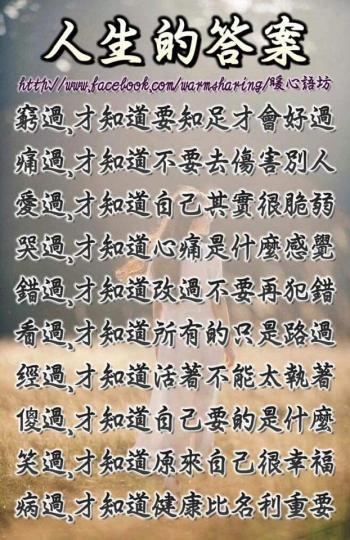 人生的答案
http://www.facebook.com/warmsharing/暖心語坊
窮過,才知道要知足才會好過
痛過,才知道不要去傷害別人
愛過,才知道自己其實很脆弱
哭過,才知道心痛是什麼感覺
錯過,才知道改過不要再犯錯
看過,才知道所有的只是路過
經過,才知道活著不能太執著
傻過,才知道自己要的是什麼
笑過,才知道原來自己很幸福
病過,才知道健康比名利重要